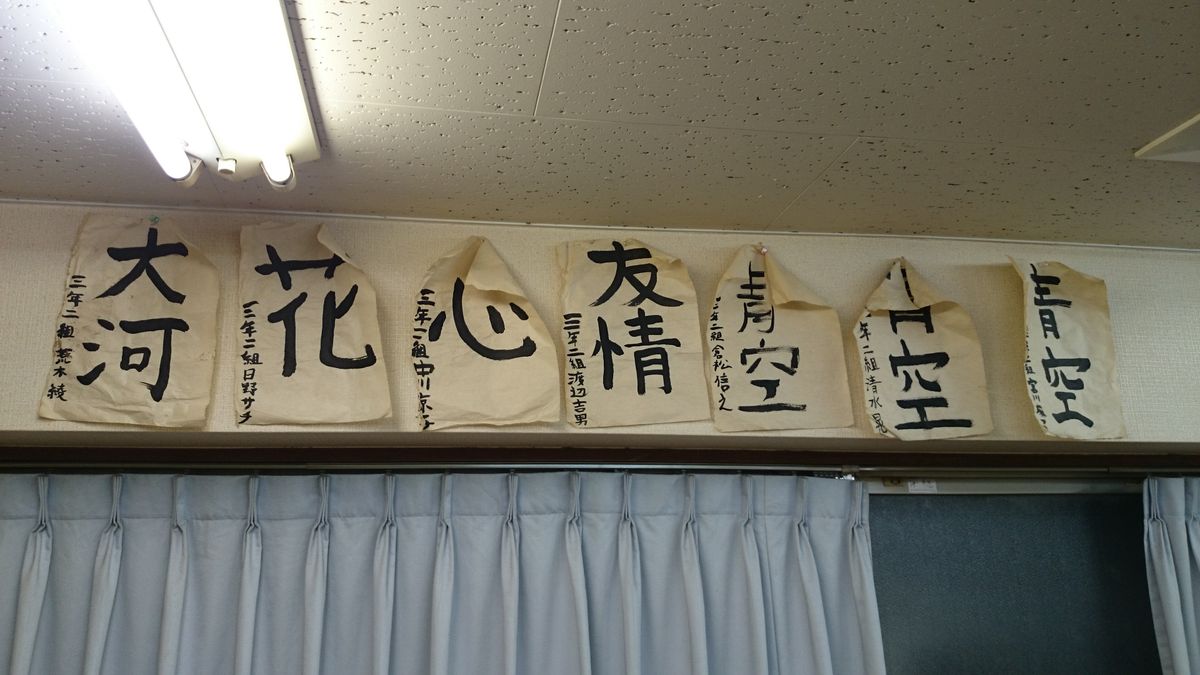 大河
三年二組 荒木 綾
花
三年二組日野サチ
心
三年二組中川
友情
三年二組渡辺吉男
青空
三年二組倉松信之
青空
年二組清水晃
青空